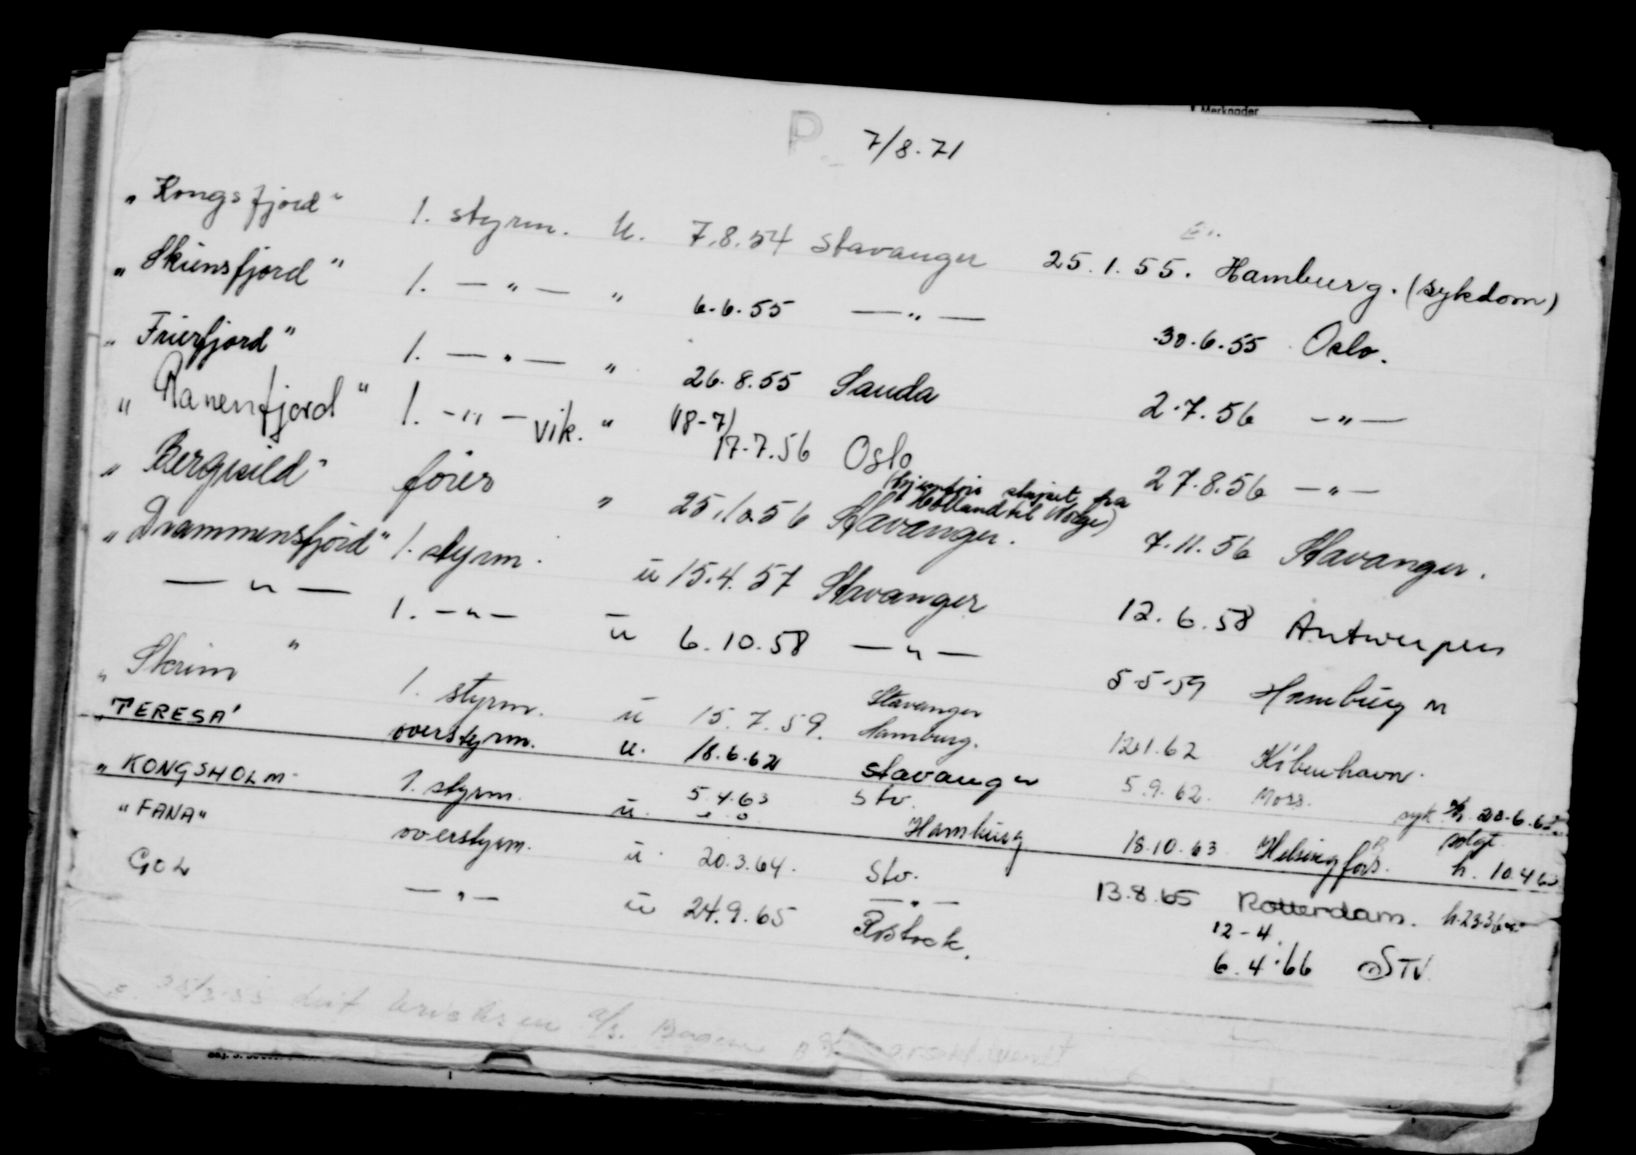 Merknader
P 7/8.71
„ Kongsfjord “ 1. styrm. u. 7.8.54 Stavanger 25.1.55. Hamburg. (sykdom)
„ Skiensfjord “ 1. — „ — „ 6.6.55 — „ — 30.6.55 Oslo.
„ Frierfjord “ 1. — „ — „ 26.8.55 Sauda 2.7.56 — „ —
„ Ranenfjord “ 1. — „ — vik. „ (18-7) 17.7.56 Oslo 27.8.56 — „ —
(hjemføre skipet fra Holland til Norge)
„ Bergesild “ fører „ 25.10.56 Stavanger. 7.11.56 Stavanger.
„ Drammensfjord “ 1. styrm. u 15.4.57 Stavanger 12.6.58 Antwerpen
— „ — 1. — „ — u 6.10.58 — „ — 5.5.59 Hamburg
„ Skrim “ 1. styrm. u 15.7.59. Stavanger Hamburg. 12.1.62 København.
„ TERESA' overstyrm. u. 18.6.62 Stavanger 5.9.62. Moss. syk 20.6.62
„ KONGSHOLM 1. styrm. u. 5.4.63 Stv. Hamburg 18.10.63 Helsingfors. solgt h. 10.4.63
„ FANA “ overstyrm. u. 20.3.64. Stv. 13.8.65 Rotterdam. h.23.3.64
GOL — „ — u 24.9.65 — „ — Rostock. 12-4. 6.4.66 STV.